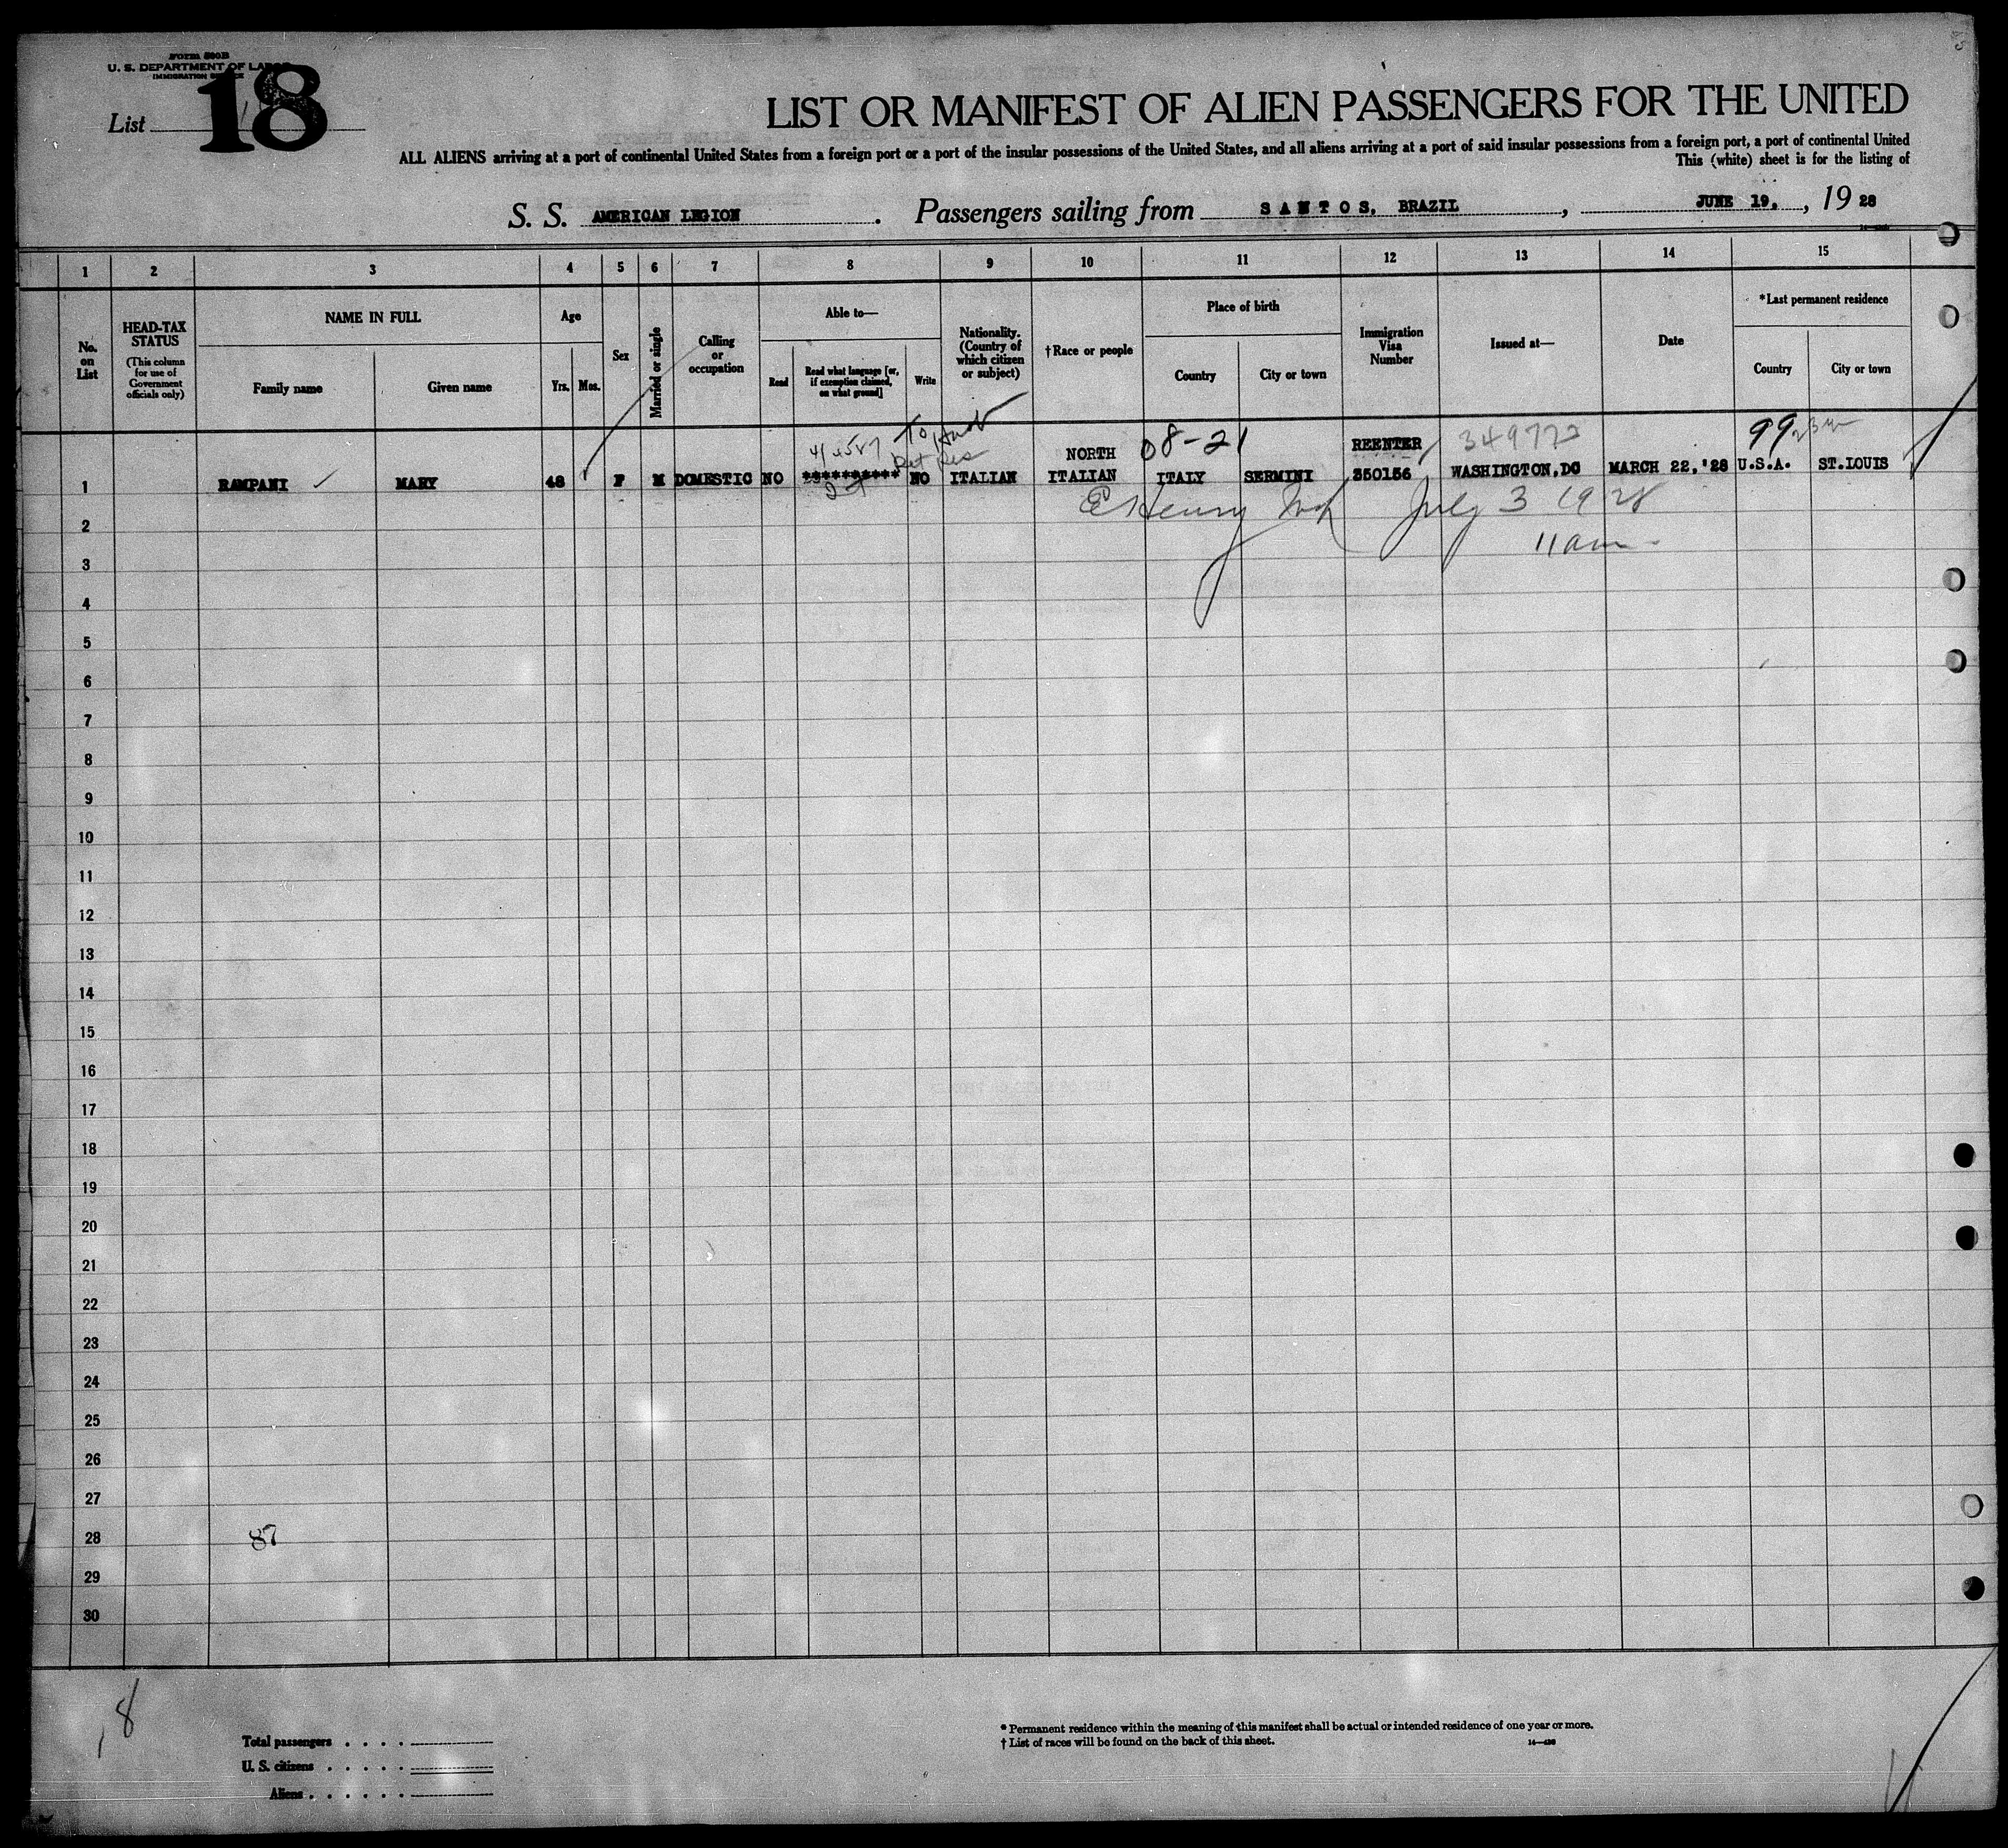 Form 500B
U. S. DEPARTMENT OF LABOR
IMMIGRATION SERVICE
List 18
LIST OR MANIFEST OF ALIEN PASSENGERS FOR THE UNITED
ALL ALIENS arriving at a port of continental United States from a foreign port or a port of the insular possessions of the United States, and all aliens arriving at a port of said insular possessions from a foreign port, a port of continental United
This (white) sheet is for the listing of
S. S. AMERICAN LEGION. Passengers sailing from SANTOS, BRAZIL, JUNE 19, 1928
1 2 3 4 5 6 7 8 9 10 11 12 13 14 15
No. on List
HEAD-TAX STATUS
(This column for use of Government officials only)
NAME IN FULL
Family name
Given name
Age
Yrs. Mos.
Sex
Married or single
Calling or occupation
Able to—
Read
Read what language [or, if exemption claimed, on what ground]
Write
Nationality. (Country of which citizen or subject)
†Race or people
Place of birth
Country
City or town
Immigration Visa Number
Issued at—
Date
*Last permanent residence
Country
City or town
08-21 REENTER 349772 99
NORTH
1 RAMPANI MARY 48 F M DOMESTIC NO ********** NO ITALIAN ITALIAN ITALY SERMINI 350156 WASHINGTON,DC MARCH 22,'28 U.S.A. ST.LOUIS
Henry July 3 1928
11am
2
3
4
5
6
7
8
9
10
11
12
13
14
15
16
17
18
19
20
21
22
23
24
25
26
27
28 87
29
30
18
Total passengers . . . .
U. S. citizens . . . . .
Aliens . . . . . .
* Permanent residence within the meaning of this manifest shall be actual or intended residence of one year or more.
† List of races will be found on the back of this sheet.